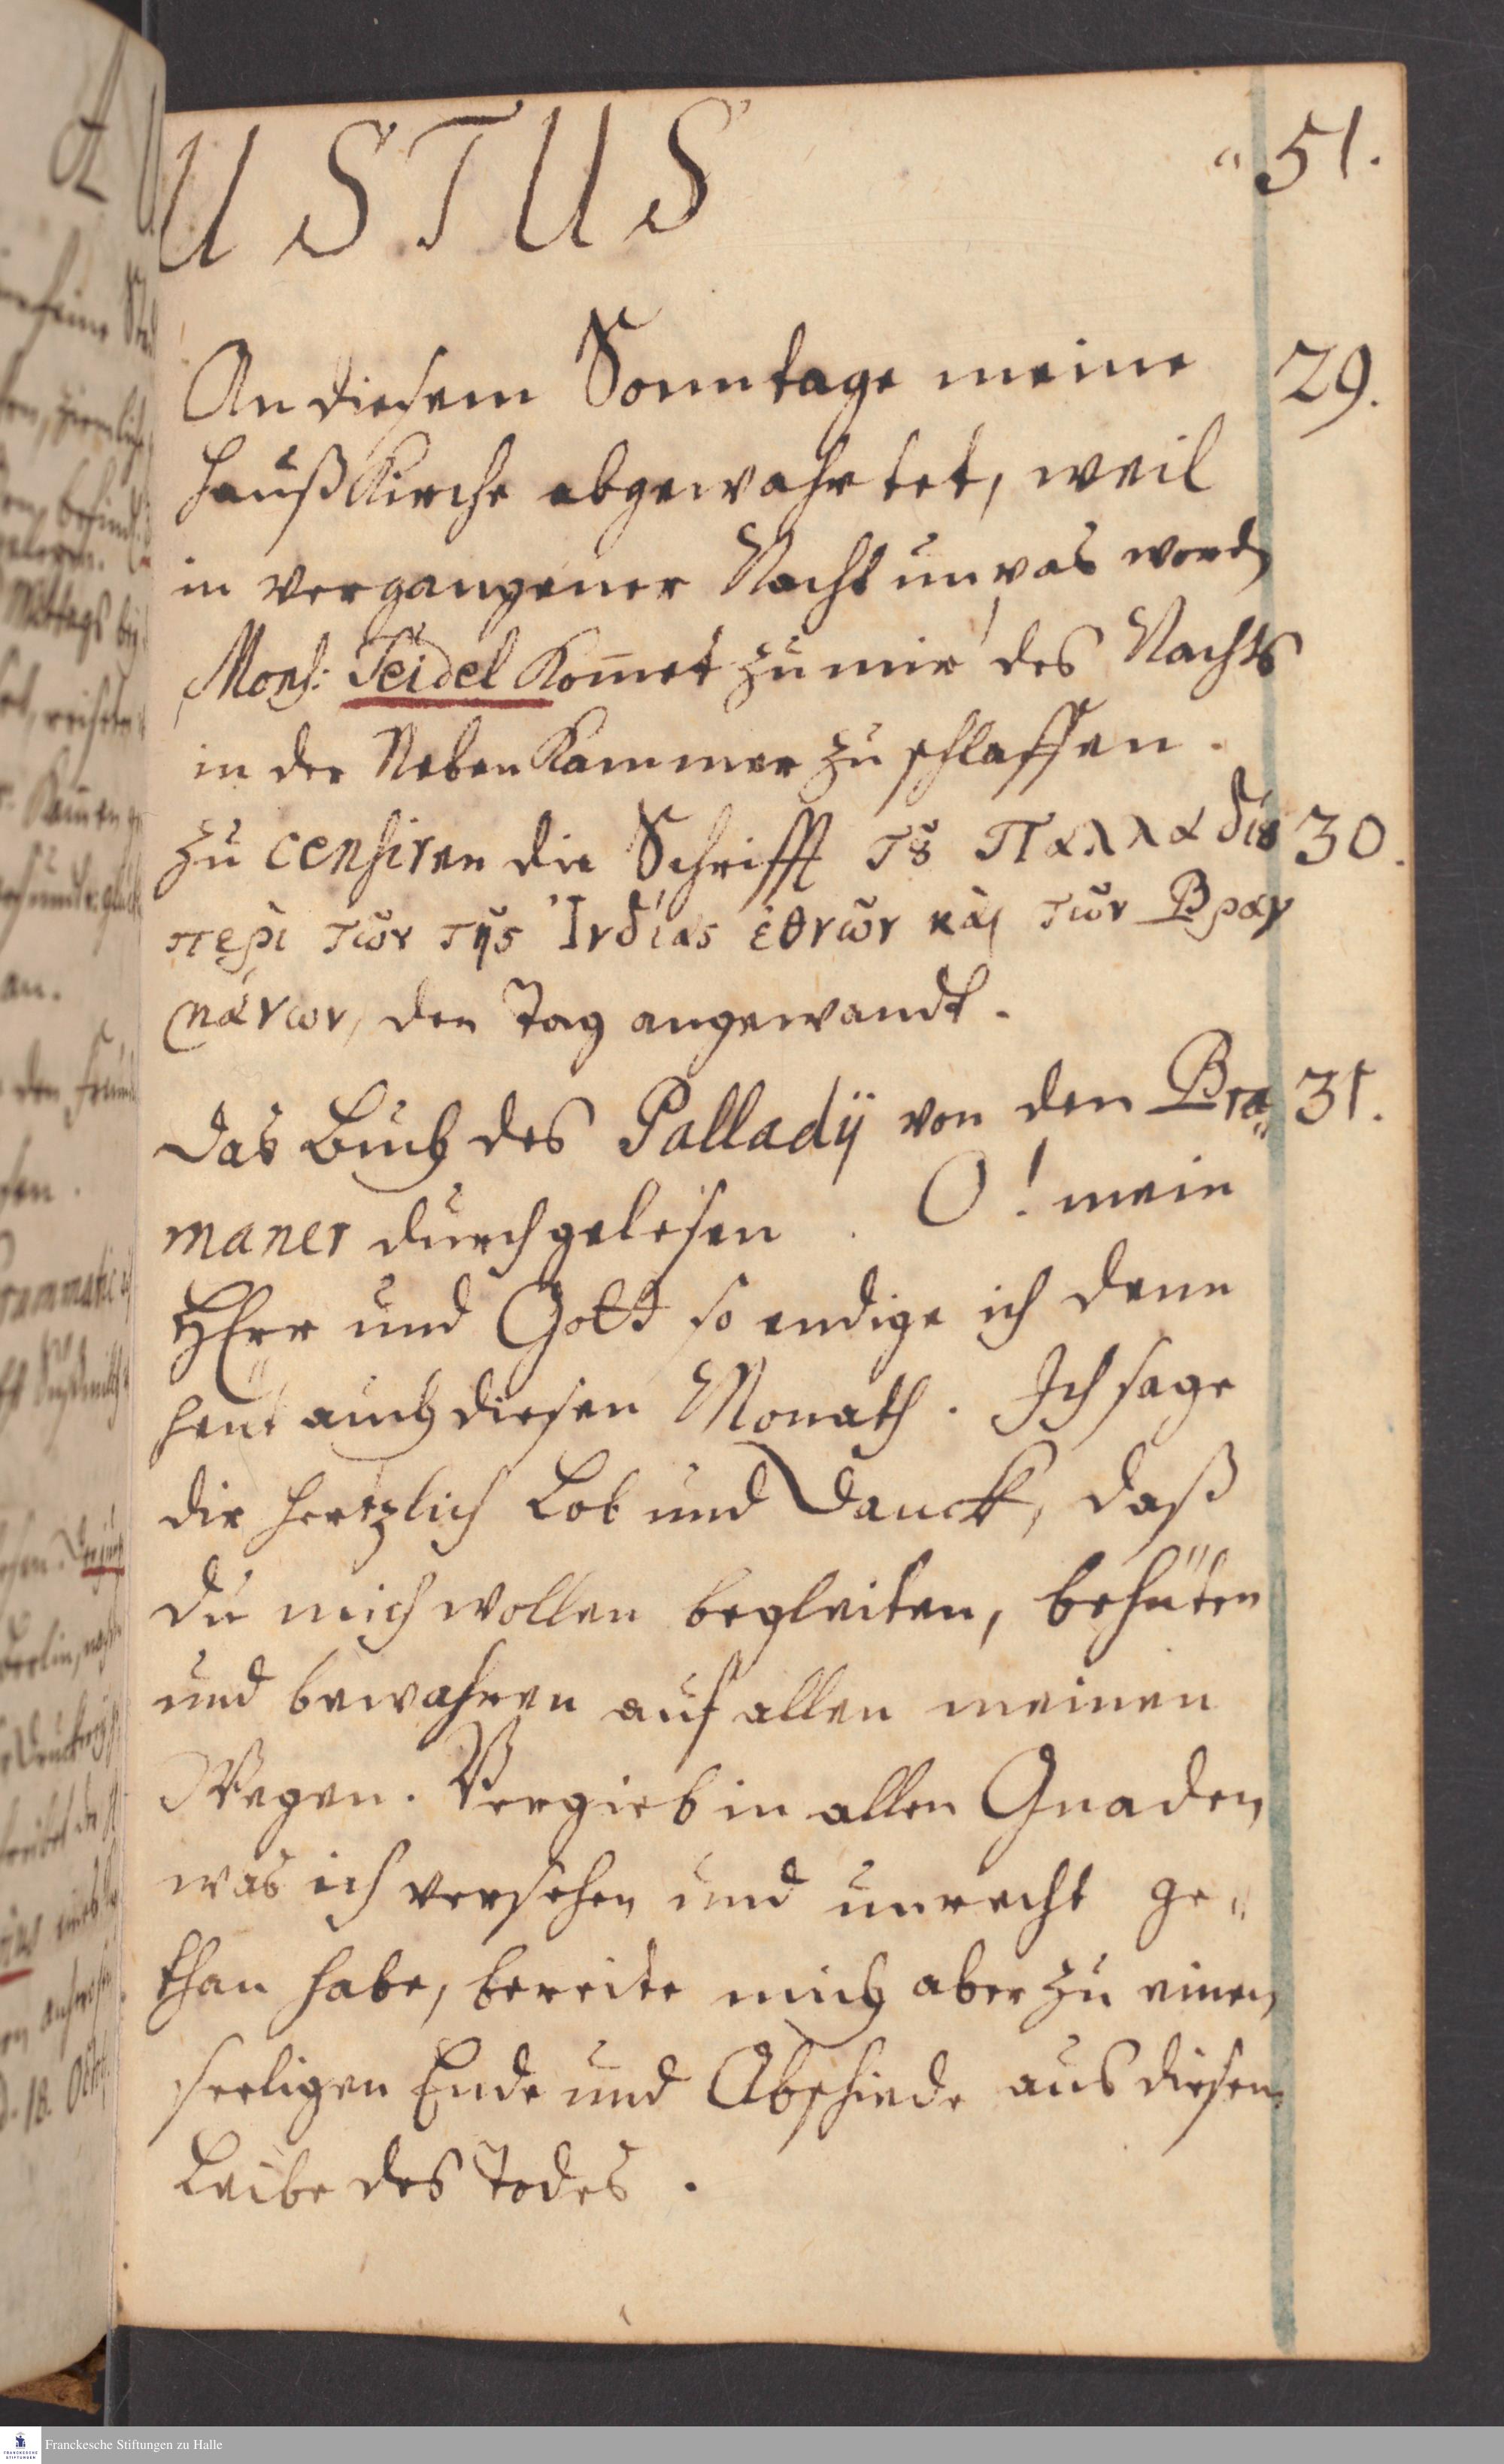 USTUS
51.
An diesem Sonntage meine 29.
Hauß Kirche abgewahrtet, weil
in vergangener Nacht unpas word
Mons: Seidel Kom̅et zu mir des Nachts
in der Neben Kammer zu schlaffen.
zu censiren die Schrifft τȣ͂ Παλλαδίȣ 30.
περὶ τῶν τῆς Ἰνδίας ἐθνῶν καὶ τῶν Βραγ
μάνων, den Tag angewandt.
Das Buch des Palladij von den Bra„ 31.
maner durchgelesen. O! mein
HErr und Gott so endige ich denn
heut auch diesen Monath. Ich sage
dir hertzlich Lob und Danck, daß
du mich wollen begleiten, behüten
und bewahren auf allen meinen
Wegen. Vergieb in allen Gnaden,
was ich versehen und unrecht ge„
than habe, bereite mich aber zu einen
seeligen Ende und Abschiede aus diesem
Leibe des Todes.
Franckesche Stiftungen zu Halle